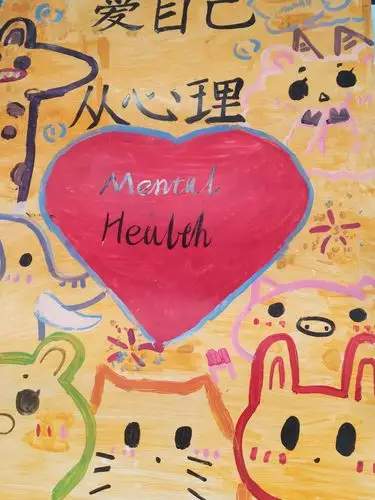 爱自己
从心理
Mental
Health